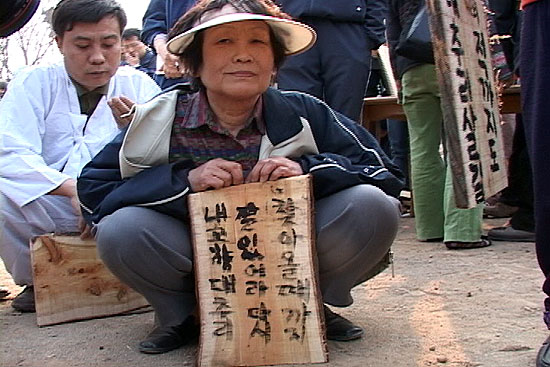 내고향대추리
잘있어라 다시
찾아올때까지